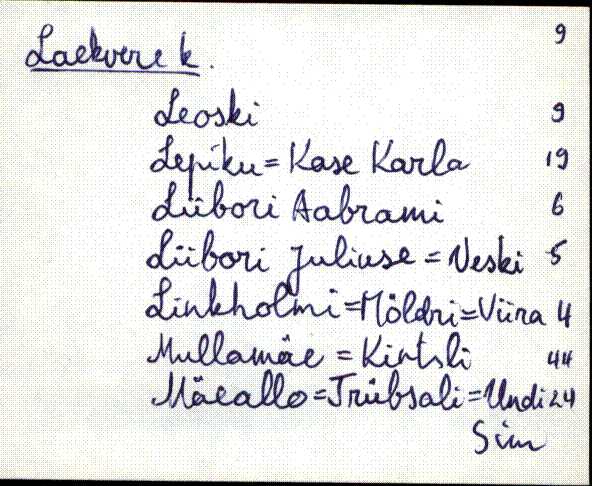 9
Laekvere k.
Leoski 9
Lepiku = Kase Karla 19
Liibori Aabrami 6
Liibori Juliuse = Neski 5
Linkholmi = Möldri = Viira 4
Mullamäe = Kintsli 44
Mäeallo = Trübsali = Undi 24
Sim